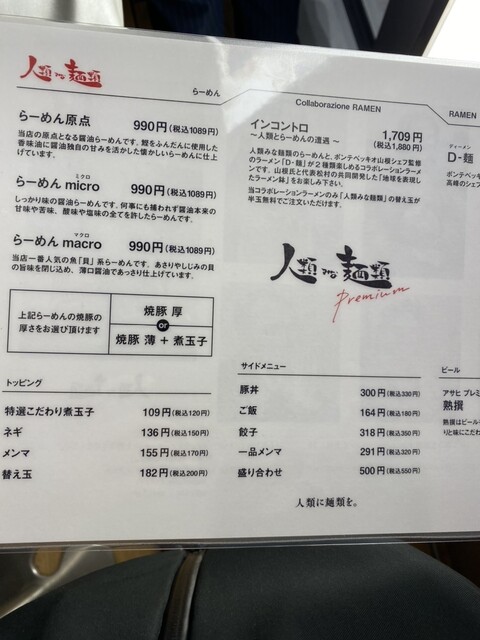 人類みな麺類
らーめん
らーめん原点 990円(税込1089円)
当店の原点となる醤油らーめんです。鰹をふんだんに使用した
香味油に醤油独自の甘みを活かした懐かしいらーめんに仕上
げています。
ミクロ
らーめん micro 990円(税込1089円)
しっかり味の醤油らーめんです。何事にも捕われず醤油本来の
甘味や苦味、酸味や塩味の全てを許したらーめんです。
マクロ
らーめん macro 990円(税込1089円)
当店一番人気の魚「貝」系らーめんです。あさりやしじみの貝
の旨味を閉じ込め、薄口醤油であっさり仕上げています。
上記らーめんの焼豚の
厚さをお選び頂けます
焼豚 厚
or
焼豚 薄 + 煮玉子
トッピング
特選こだわり煮玉子 109円(税込120円)
ネギ 136円(税込150円)
メンマ 155円(税込170円)
替え玉 182円(税込200円)
Collaborazione RAMEN
インコントロ 1,709円
〜人類とらーめんの遭遇〜 (税込1,880円)
人類みな麺類のらーめんと、ポンテベッキオ山根シェフ監修
のラーメン「D-麺」が2種類楽しめるコラボレーションラーメ
ンです。山根氏と代表松村の共同開発した「地球を表現し
たラーメン鉢」をお楽しみ下さい。
当コラボレーションラーメンのみ「人類みな麺類」の替え玉が
半玉無料でご注文いただけます。
人類みな麺類
Premium
サイドメニュー
豚丼 300円(税込330円)
ご飯 164円(税込180円)
餃子 318円(税込350円)
一品メンマ 291円(税込320円)
盛り合わせ 500円(税込550円)
人類に麺類を。
RAMEN
ディーメン
D-麺
ポンテベッキ
高峰のシェフ
ビール
アサヒ プレミ
熟撰
熟撰はビール
りと味にこだわ